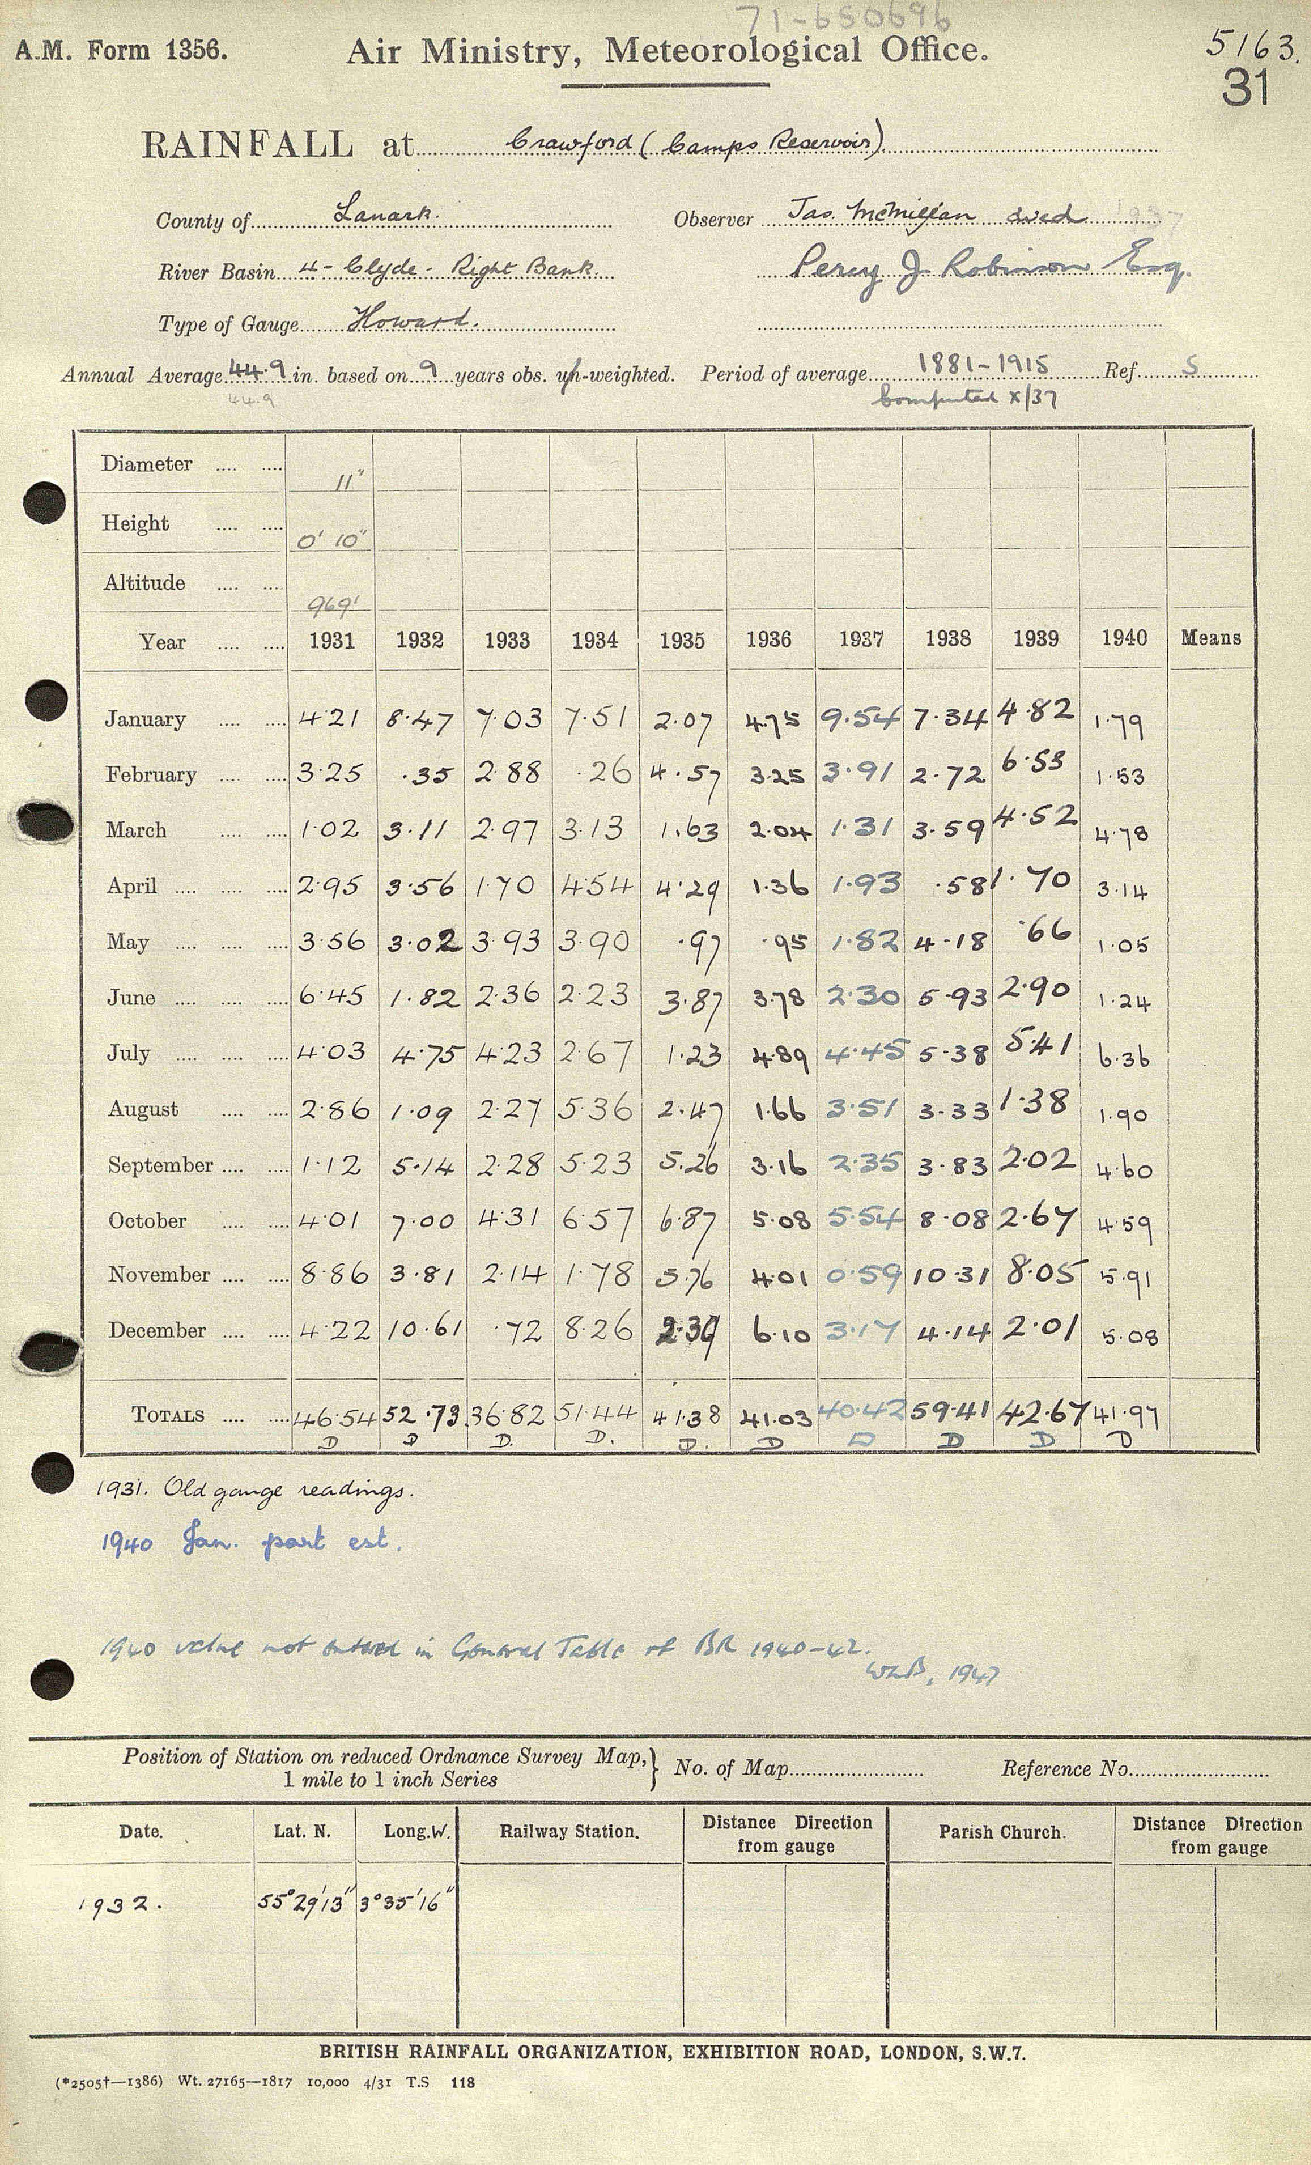 71-650696
A.M. Form 1356.
Air Ministry, Meteorological Office.
5163.
31
RAINFALL at Crawford (Camps Reservoir).
County of Lanark.
Observer Jas. McMillan dved 1937
River Basin 4 - Clyde - Right Bank
Percy J. Robinson Esq.
Type of Gauge Howard.
Annual Average 44.9 in. based on 9 years obs. un-weighted. Period of average 1881-1915 Ref. S
44.9
Computed X/37
Diameter .... .... 11"
Height .... .... 0' 10"
Altitude .... .... 969'
Year .... .... 1931 1932 1933 1934 1935 1936 1937 1938 1939 1940 Means
January .... .... 4.21 8.47 7.03 7.51 2.07 4.75 9.54 7.34 4.82 1.79
February .... .... 3.25 .35 2.88 .26 4.57 3.25 3.91 2.72 6.53 1.53
March .... .... 1.02 3.11 2.97 3.13 1.63 2.04 1.31 3.59 4.52 4.78
April .... .... .... 2.95 3.56 1.70 4.54 4.29 1.36 1.93 .58 1.70 3.14
May .... .... .... 3.56 3.02 3.93 3.90 .97 .95 1.82 4.18 .66 1.05
June .... .... .... 6.45 1.82 2.36 2.23 3.87 3.78 2.30 5.93 2.90 1.24
July .... .... .... 4.03 4.75 4.23 2.67 1.23 4.89 4.45 5.38 5.41 6.36
August .... .... 2.86 1.09 2.27 5.36 2.47 1.66 3.51 3.33 1.38 1.90
September .... .... 1.12 5.14 2.28 5.23 5.26 3.16 2.35 3.83 2.02 4.60
October .... .... 4.01 7.00 4.31 6.57 6.87 5.08 5.54 8.08 2.67 4.59
November .... .... 8.86 3.81 2.14 1.78 5.76 4.01 0.59 10.31 8.05 5.91
December .... .... 4.22 10.61 .72 8.26 2.39 6.10 3.17 4.14 2.01 5.08
TOTALS .... .... 46.54 52.73 36.82 51.44 41.38 41.03 40.42 59.41 42.67 41.97
D D D. D. D. D D D D D
1931. Old gauge readings.
1940 Jan. part est.
1940 value not entered in General Table of BR 1940-42.
WLB, 1947
Position of Station on reduced Ordnance Survey Map,
1 mile to 1 inch Series
No. of Map
Reference No.
Date. Lat. N. Long. W. Railway Station. Distance Direction from gauge Parish Church. Distance Direction from gauge
1932. 55°29'13" 3°35'16"
BRITISH RAINFALL ORGANIZATION, EXHIBITION ROAD, LONDON, S.W.7.
(*2505†—1386) Wt. 27165—1817 10,000 4/31 T.S 118